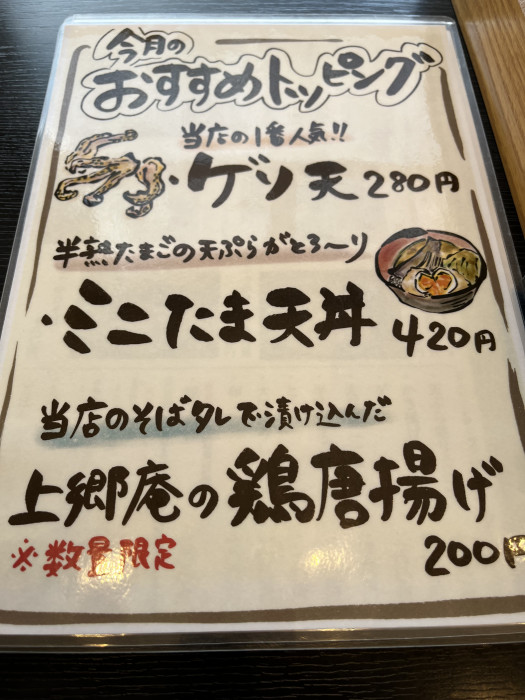 今月の
おすすめトッピング
当店の1番人気!!
・ゲソ天 280円
半熟たまごの天ぷらがとろ〜り
・ミニたま天丼 420円
当店のそばタレで漬け込んだ
上郷庵の鶏唐揚げ
※数量限定
200円